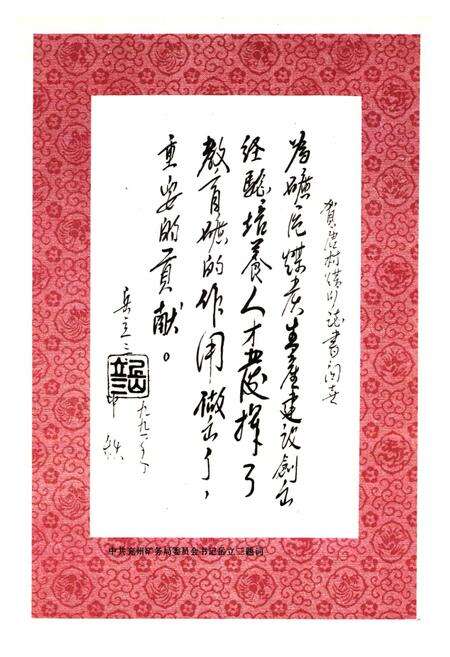 贺唐村煤矿志书问世
为矿区煤炭生产建设创出
经验培养人才发挥了
教育矿的作用做出了，
重要的贡献。
岳立三
一九九一年
中共兖州矿务局委员会书记岳立三题词